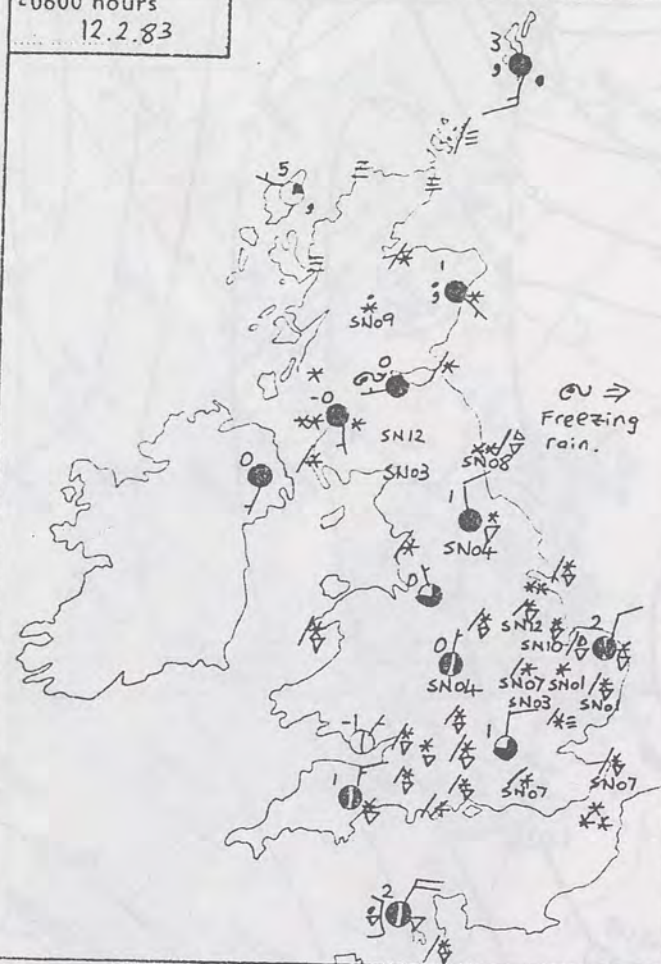 -0600 hours
12.2.83
3
5
1
SN09
0
-0
SN12
SN03
⇒
Freezing
rain.
SN08
0
1
SN04
0
2
SN12
SN10
0
SN04
SN07
SN01
SN01
SN03
-1
1
1
SN07
SN07
2